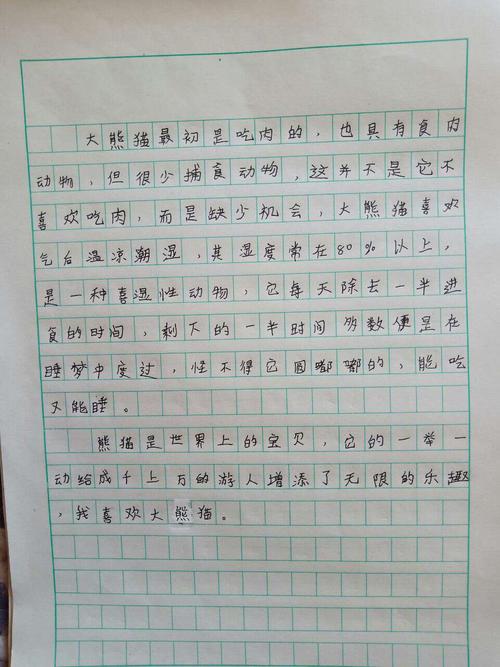 大熊猫最初是吃肉的，也具有食肉
动物，但很少捕食动物，这并不是它不
喜欢吃肉，而是缺少机会，大熊猫喜欢
气后温凉潮湿，其湿度常在80%以上，
是一种喜湿性动物，它每天除去一半进
食的时间，剩下的一半时间多数便是在
睡梦中度过，怪不得它圆嘟嘟的，能吃
又能睡。
熊猫是世界上的宝贝，它的一举一
动给成千上万的游人增添了无限的乐趣
，我喜欢大熊猫。